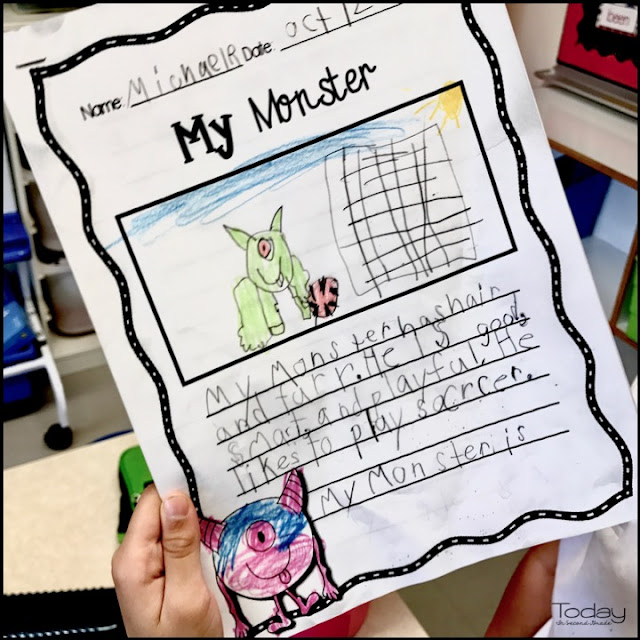 Name: Michaela Date: oct 12
My Monster
My Monster has hair
and furr. He is good,
smart and playful. He
likes to play soccer.
My Monster is
been
Today
in second grade